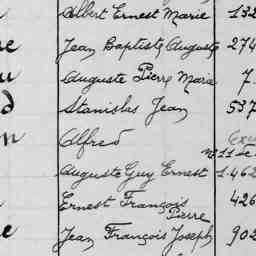 Albert Ernest Marie 132
Jean Baptiste Auguste 274
Auguste Pierre Marie 7
Stanislas Jean 537
Alfred
n° 11 de
Auguste Guy Ernest 1.462
Ernest François 426
Pierre
Jean François Joseph 902